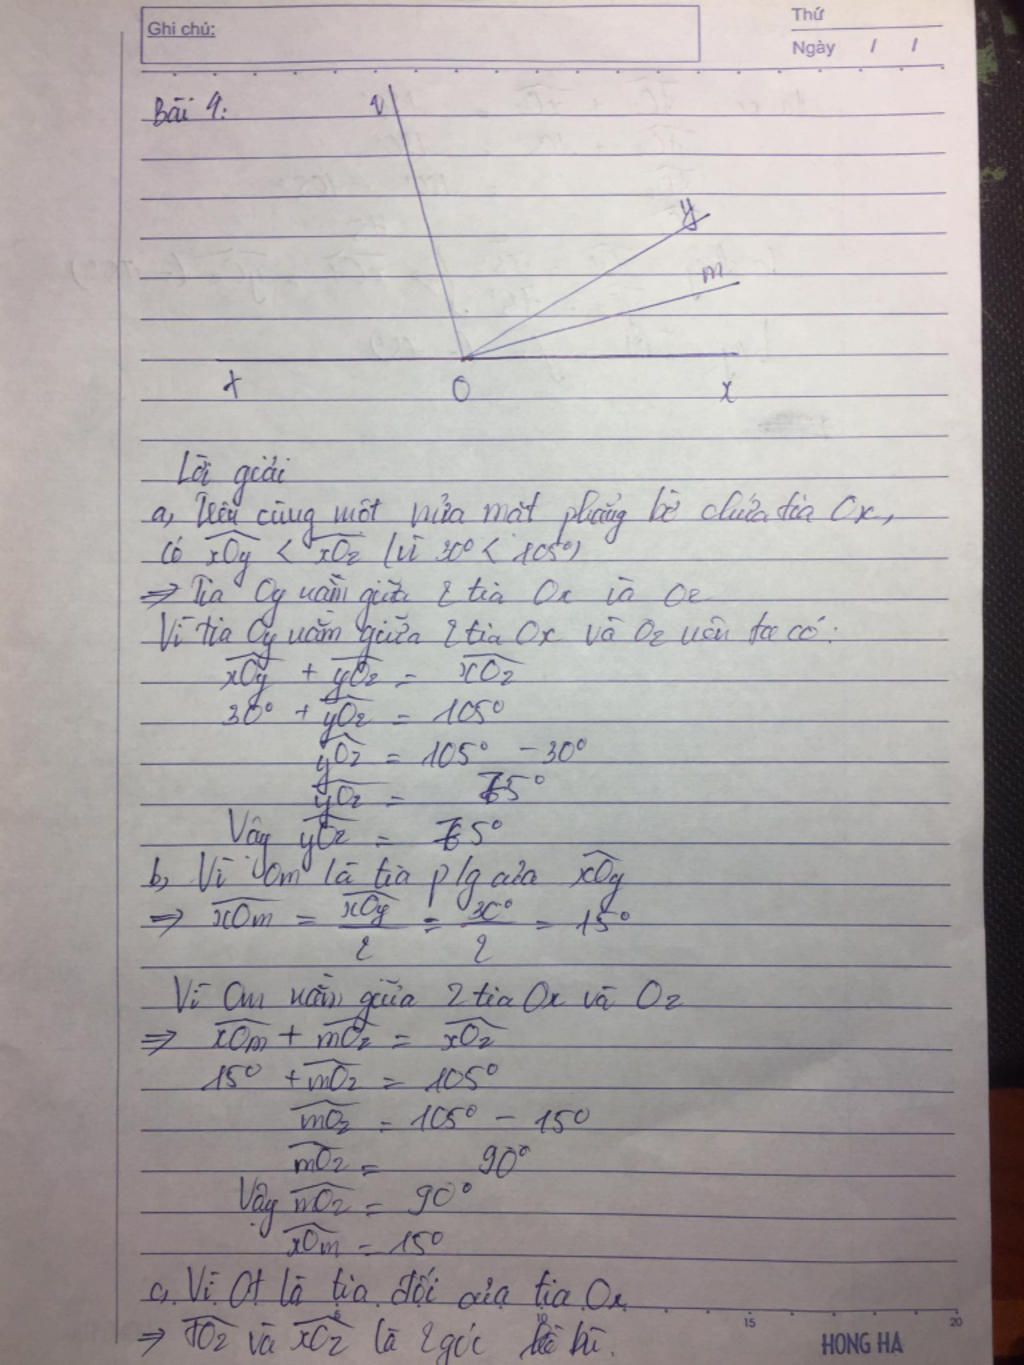 Ghi chú:
Thứ
Ngày / /
Bài 4:
z
y
m
t
O
x
Lời giải
a, Trên cùng một nửa mặt phẳng bờ chứa tia Ox,
có xOy < xOz (vì 30° < 105°)
=> Tia Oy nằm giữa 2 tia Ox và Oz
Vì tia Oy nằm giữa 2 tia Ox và Oz nên ta có:
xOy + yOz = xOz
30° + yOz = 105°
yOz = 105° - 30°
yOz = 75°
Vậy yOz = 75°
b, Vì Om là tia p/g của xOy
=> xOm = xOy/2 = 30°/2 = 15°
Vì Om nằm giữa 2 tia Ox và Oz
=> xOm + mOz = xOz
15° + mOz = 105°
mOz = 105° - 15°
mOz = 90°
Vậy mOz = 90°
xOm = 15°
c, Vì Ot là tia đối của tia Ox
=> tOz và xOz là 2 góc kề bù.
5 10 15 20
HONG HA